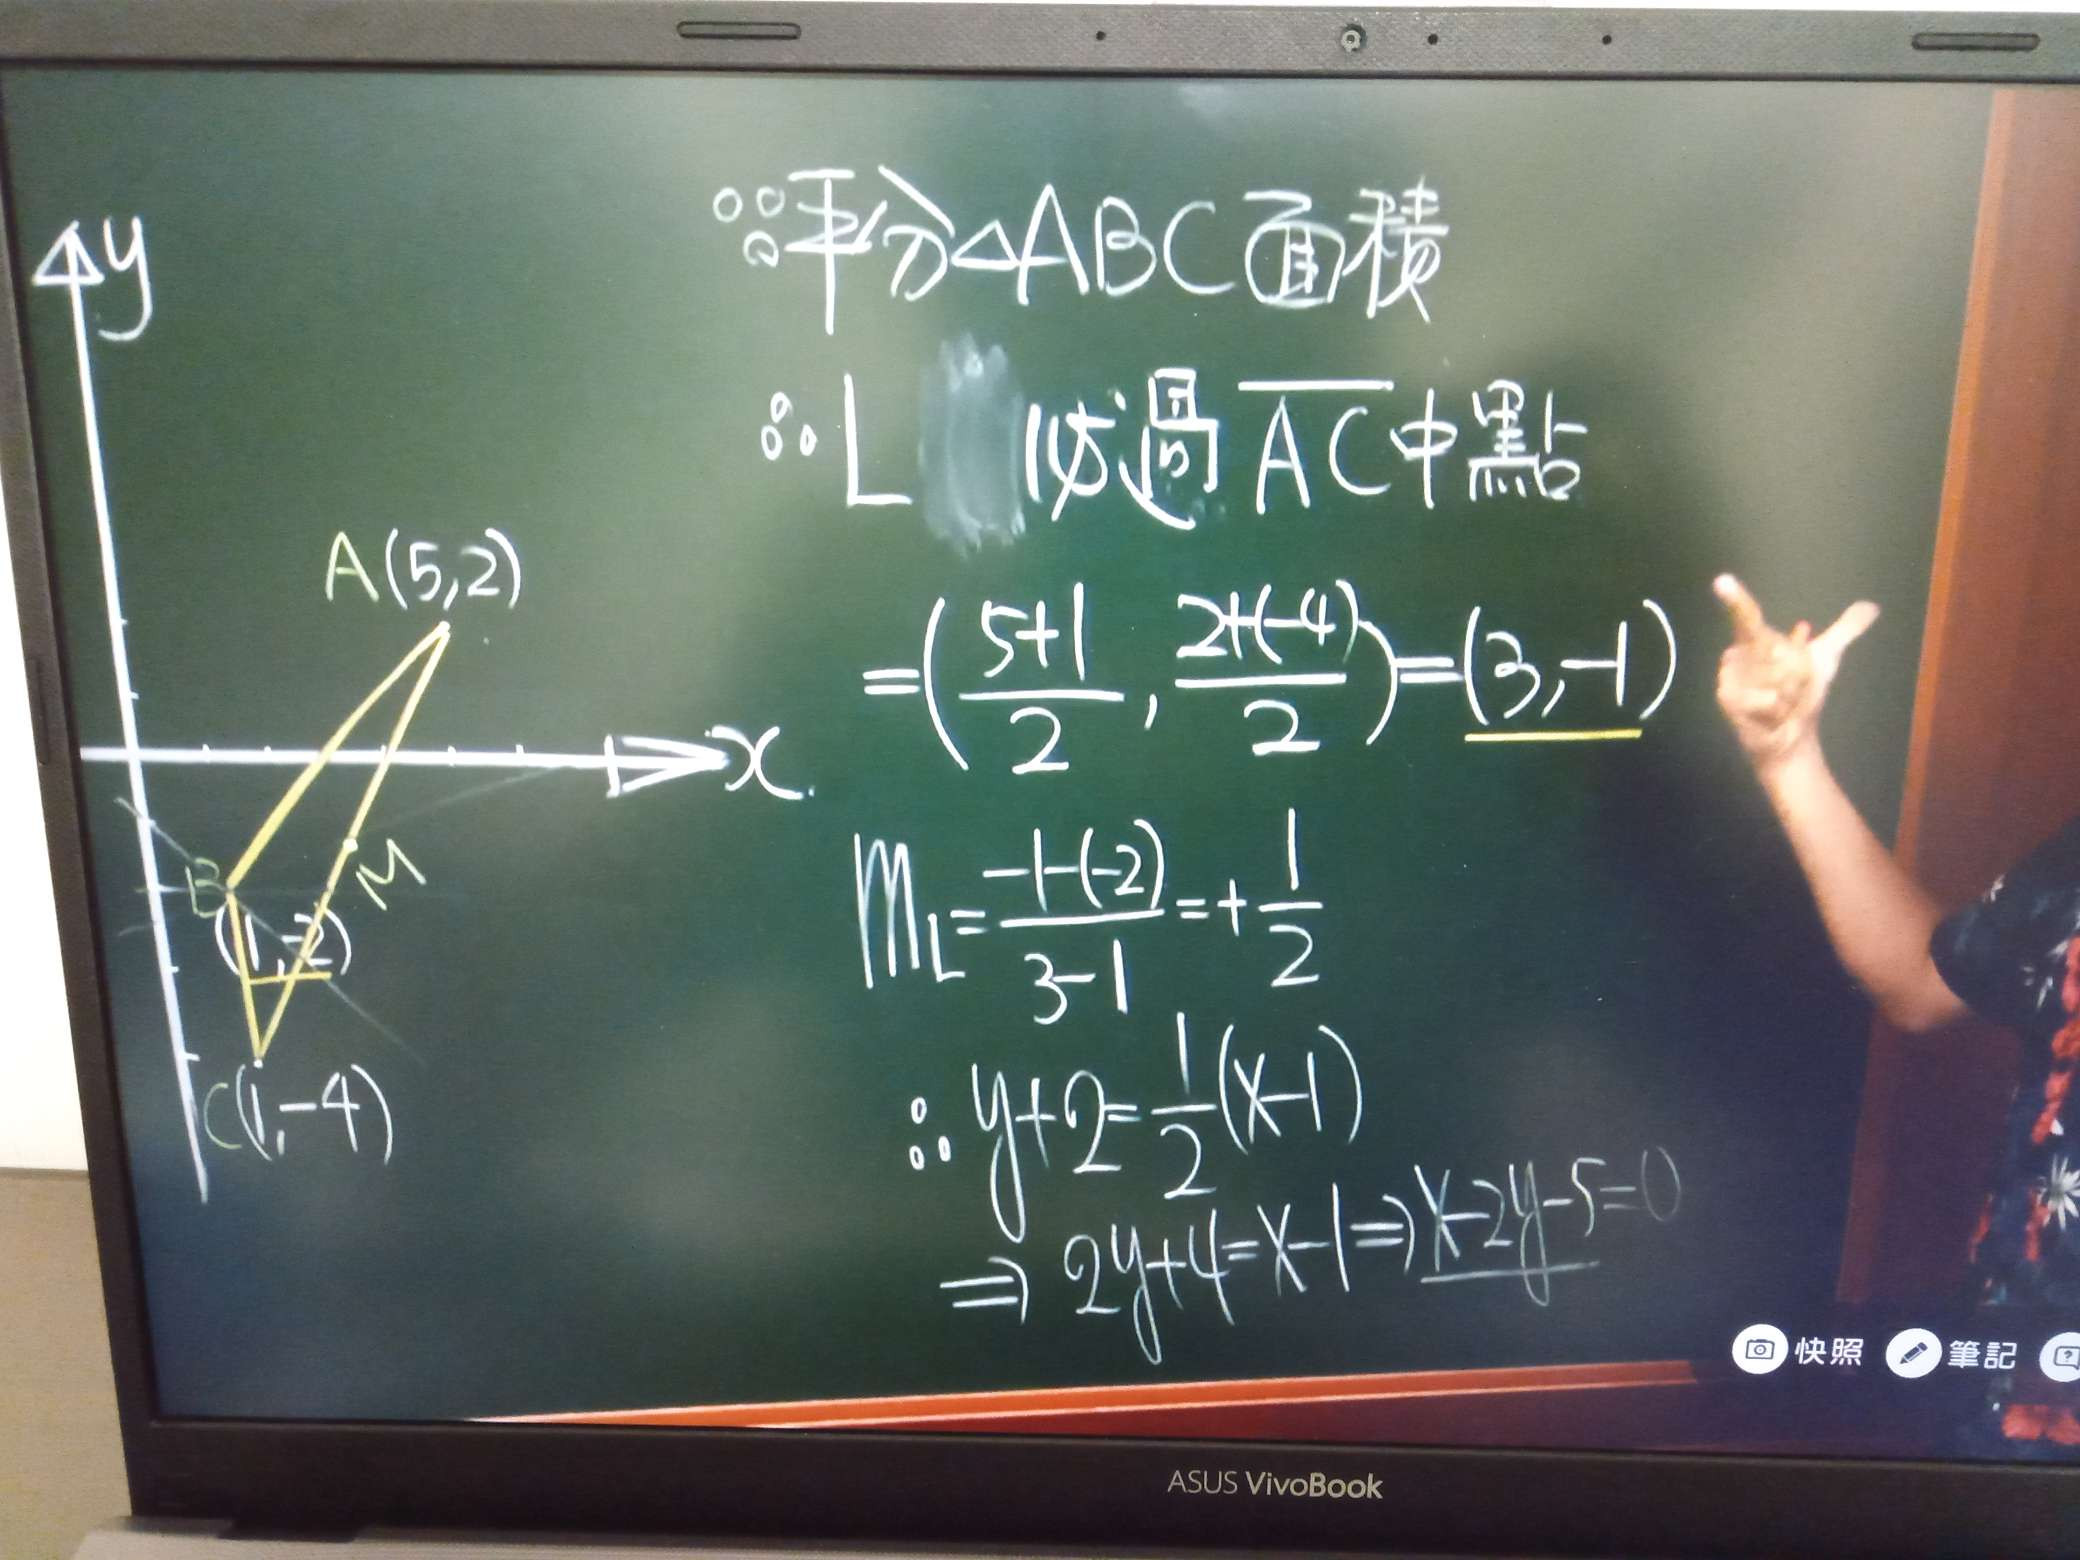 ∵平分△ABC面積
∴L 必過 \overline{AC}中點
=(\frac{5+1}{2}, \frac{2+(-4)}{2})=(3,-1)
m_L=\frac{-1-(-2)}{3-1}=+\frac{1}{2}
∴y+2=\frac{1}{2}(x-1)
⇒2y+4=x-1⇒x-2y-5=0
y
A(5,2)
x
B
M
(1,-2)
C(1,-4)
快照 筆記
ASUS VivoBook